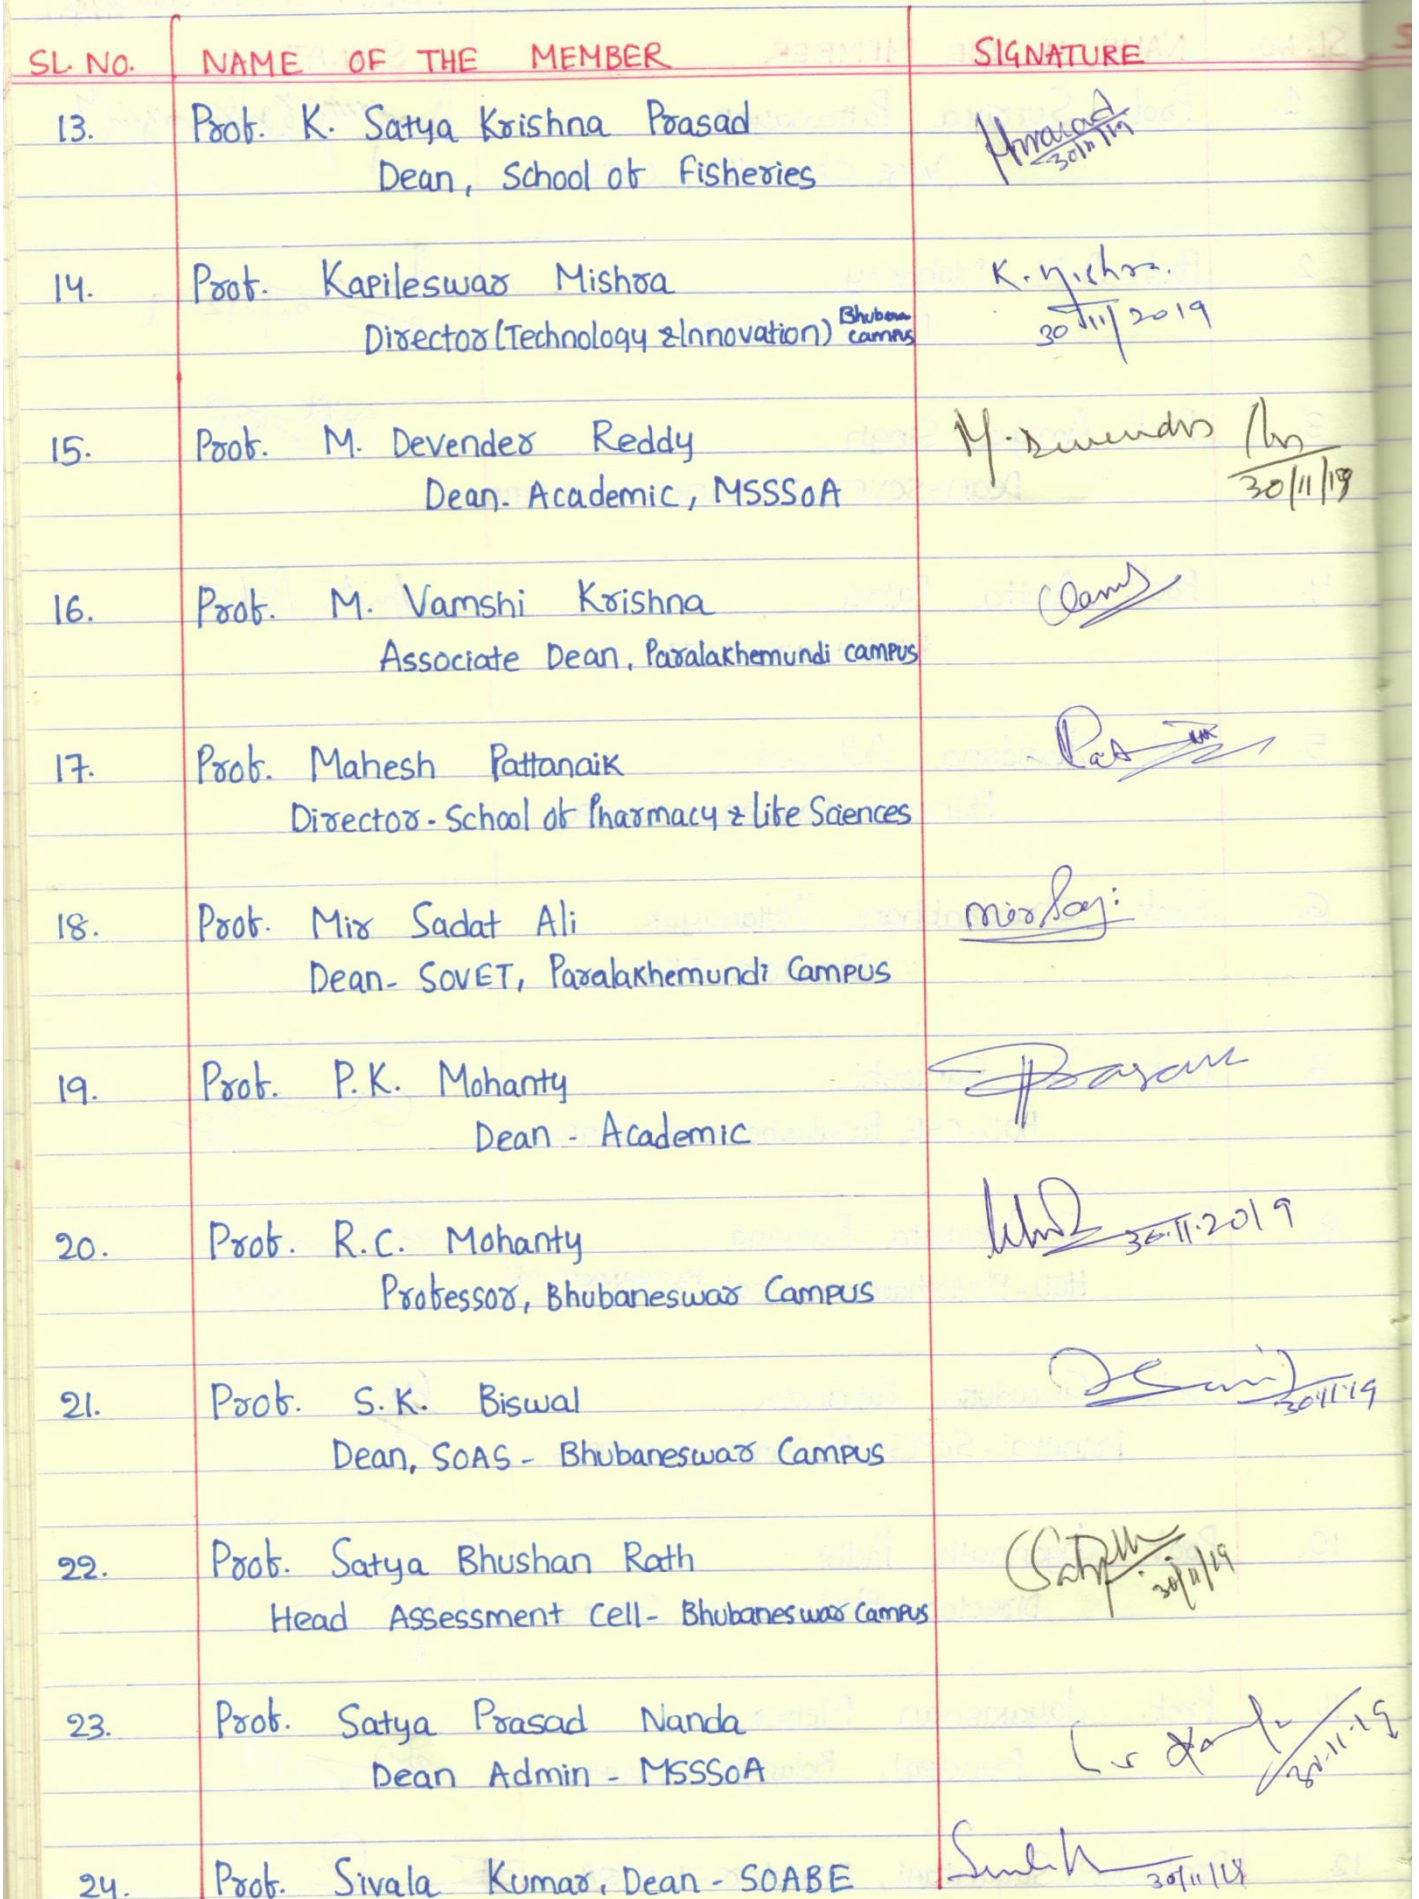 SL. NO. NAME OF THE MEMBER SIGNATURE
13. Prof. K. Satya Krishna Prasad
Dean, School of Fisheries
30/11/19
14. Prof. Kapileswar Mishra K. Mishra.
Director (Technology & Innovation) Bhuban campus
30/11/2019
15. Prof. M. Devender Reddy M. Devender
Dean - Academic, MSSSoA 30/11/19
16. Prof. M. Vamshi Krishna
Associate Dean, Paralakhemundi campus
17. Prof. Mahesh Pattanaik
Director - School of Pharmacy & Life Sciences
18. Prof. Mir Sadat Ali
Dean - SOVET, Paralakhemundi Campus
19. Prof. P.K. Mohanty
Dean - Academic
20. Prof. R.C. Mohanty 30.11.2019
Professor, Bhubaneswar Campus
21. Prof. S.K. Biswal 30.11.19
Dean, SOAS - Bhubaneswar Campus
22. Prof. Satya Bhushan Rath 30/11/19
Head Assessment Cell - Bhubaneswar Campus
23. Prof. Satya Prasad Nanda 30.11.19
Dean Admin - MSSSoA
24. Prof. Sivala Kumar, Dean - SOABE 30/11/19